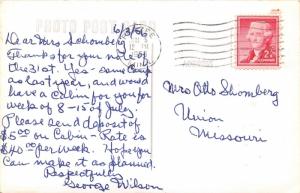 PHOTO POST CARD
6/3/56
Dear Mrs Schomberg
Thanks for your note
of the 31st. Yes - same Camp
as last year, and would
have a Cabin for you for
week of 8-15 of July.
Please send deposit of
$5.00 on Cabin - Rate is
$40.00 per week. Hope you
can make it as planned.
Respectfully
George Wilson
12 PM
2¢
Mrs Otto Shomberg
Union
Missouri